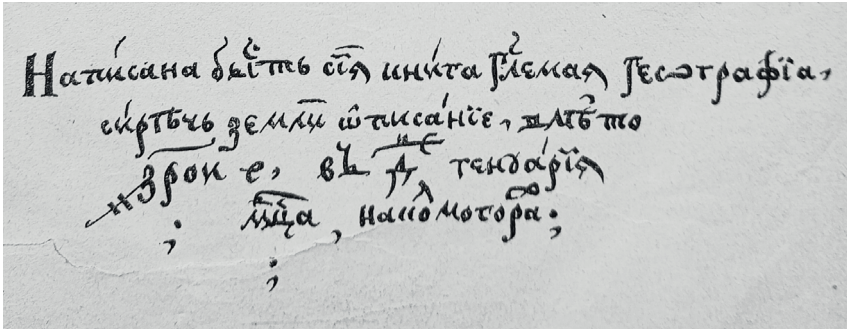 Написана бы́сть сїѧ кни́га гл҃емаѧ Геѡграфїа,
си́рѣчь земли ѡ҆писа́нїе, в лѣ́то
҂зрок е, въ д҃ генуа́рїѧ
; мц҃а,
;